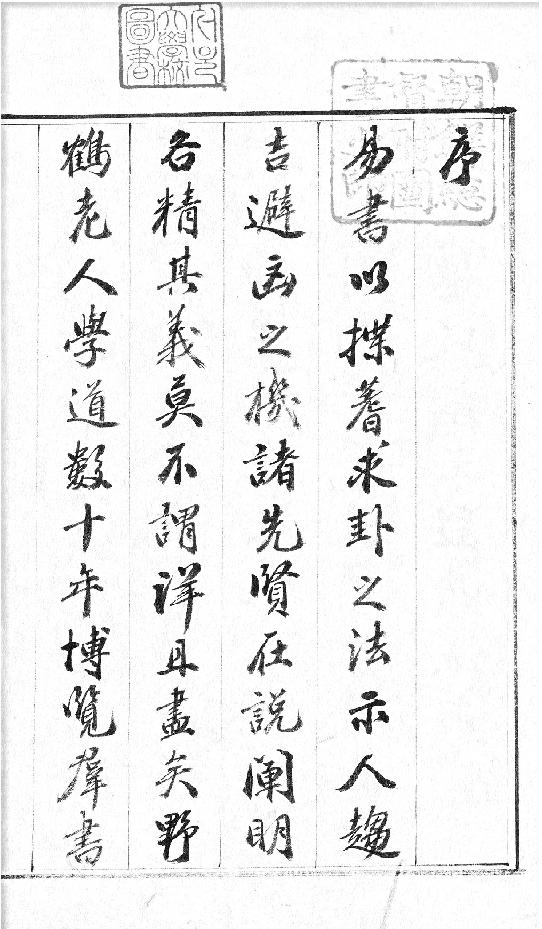 序
易書以揲蓍求卦之法示人趨
吉避凶之機諸先賢在說闡明
各精其義莫不謂詳且盡矣野
鶴老人學道數十年博覽羣書